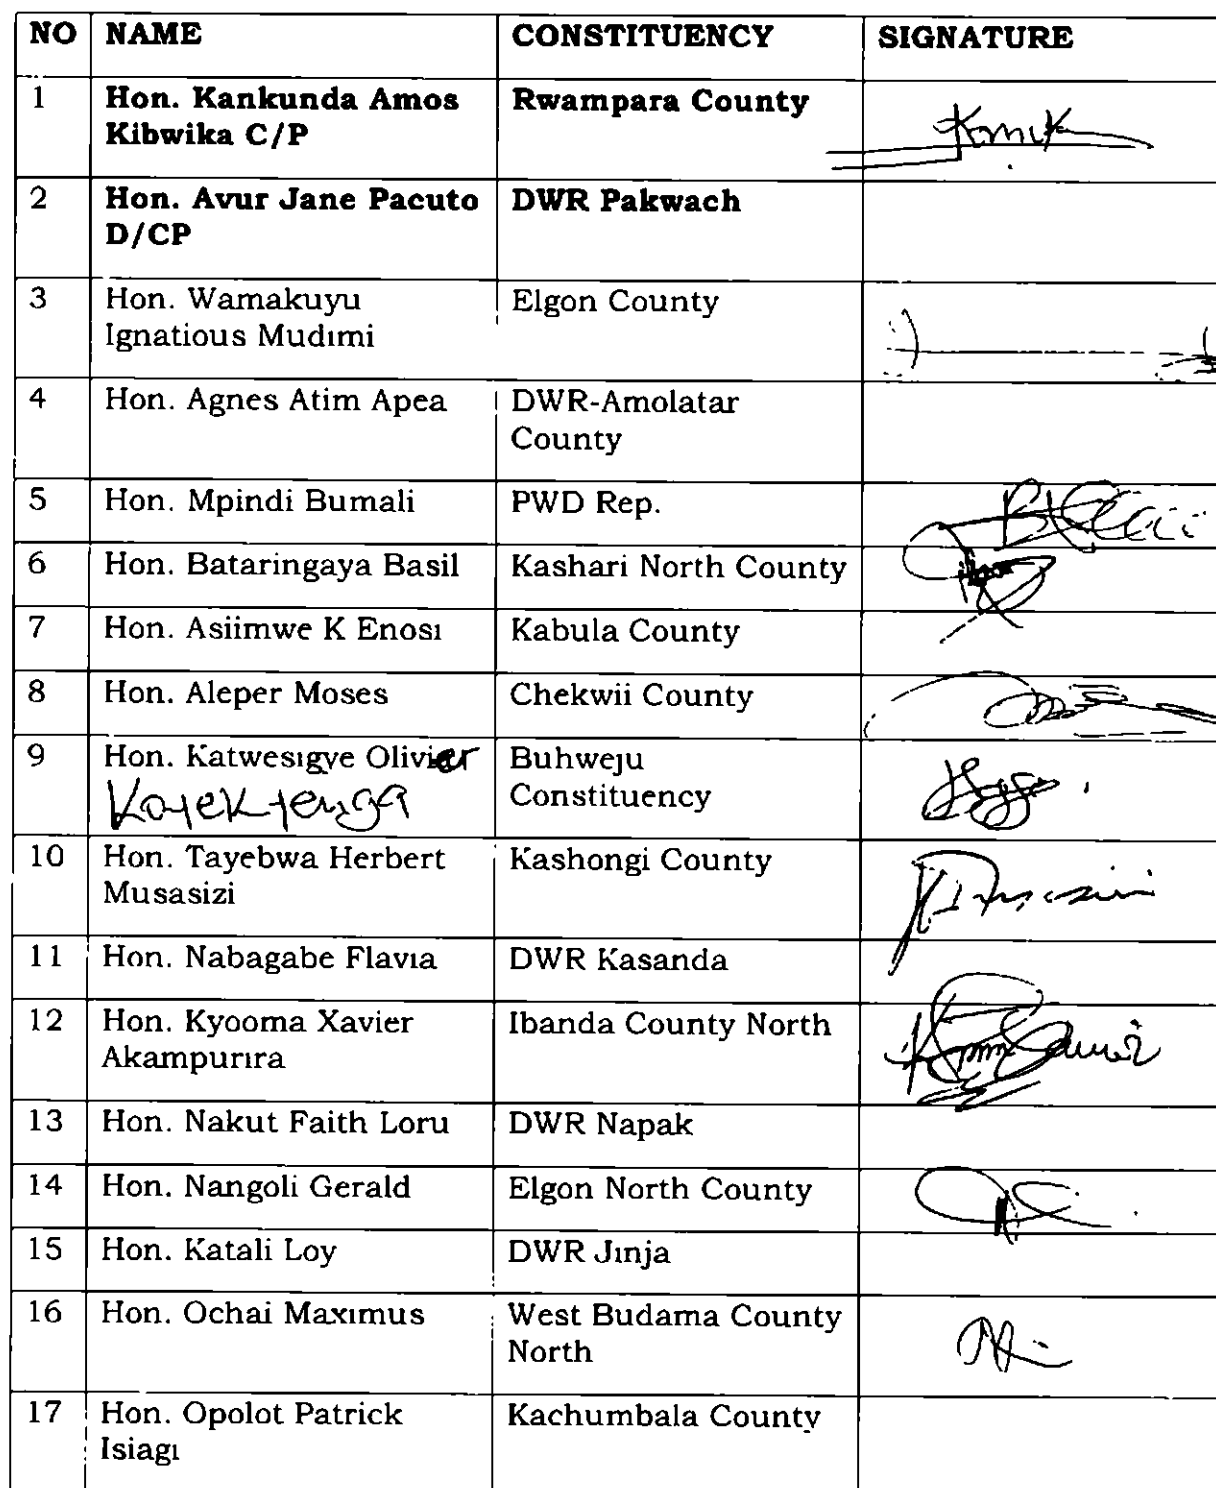 NO NAME CONSTITUENCY SIGNATURE
1 Hon. Kankunda Amos Rwampara County
Kibwika C/P
2 Hon. Avur Jane Pacuto DWR Pakwach
D/CP
3 Hon. Wamakuyu Elgon County
Ignatious Mudimi
4 Hon. Agnes Atim Apea DWR-Amolatar
County
5 Hon. Mpindi Bumali PWD Rep.
6 Hon. Bataringaya Basil Kashari North County
7 Hon. Asiimwe K Enosi Kabula County
8 Hon. Aleper Moses Chekwii County
9 Hon. Katwesigye Olivier Buhweju
Constituency
10 Hon. Tayebwa Herbert Kashongi County
Musasizi
11 Hon. Nabagabe Flavia DWR Kasanda
12 Hon. Kyooma Xavier Ibanda County North
Akampurira
13 Hon. Nakut Faith Loru DWR Napak
14 Hon. Nangoli Gerald Elgon North County
15 Hon. Katali Loy DWR Jinja
16 Hon. Ochai Maximus West Budama County
North
17 Hon. Opolot Patrick Kachumbala County
Isiagi